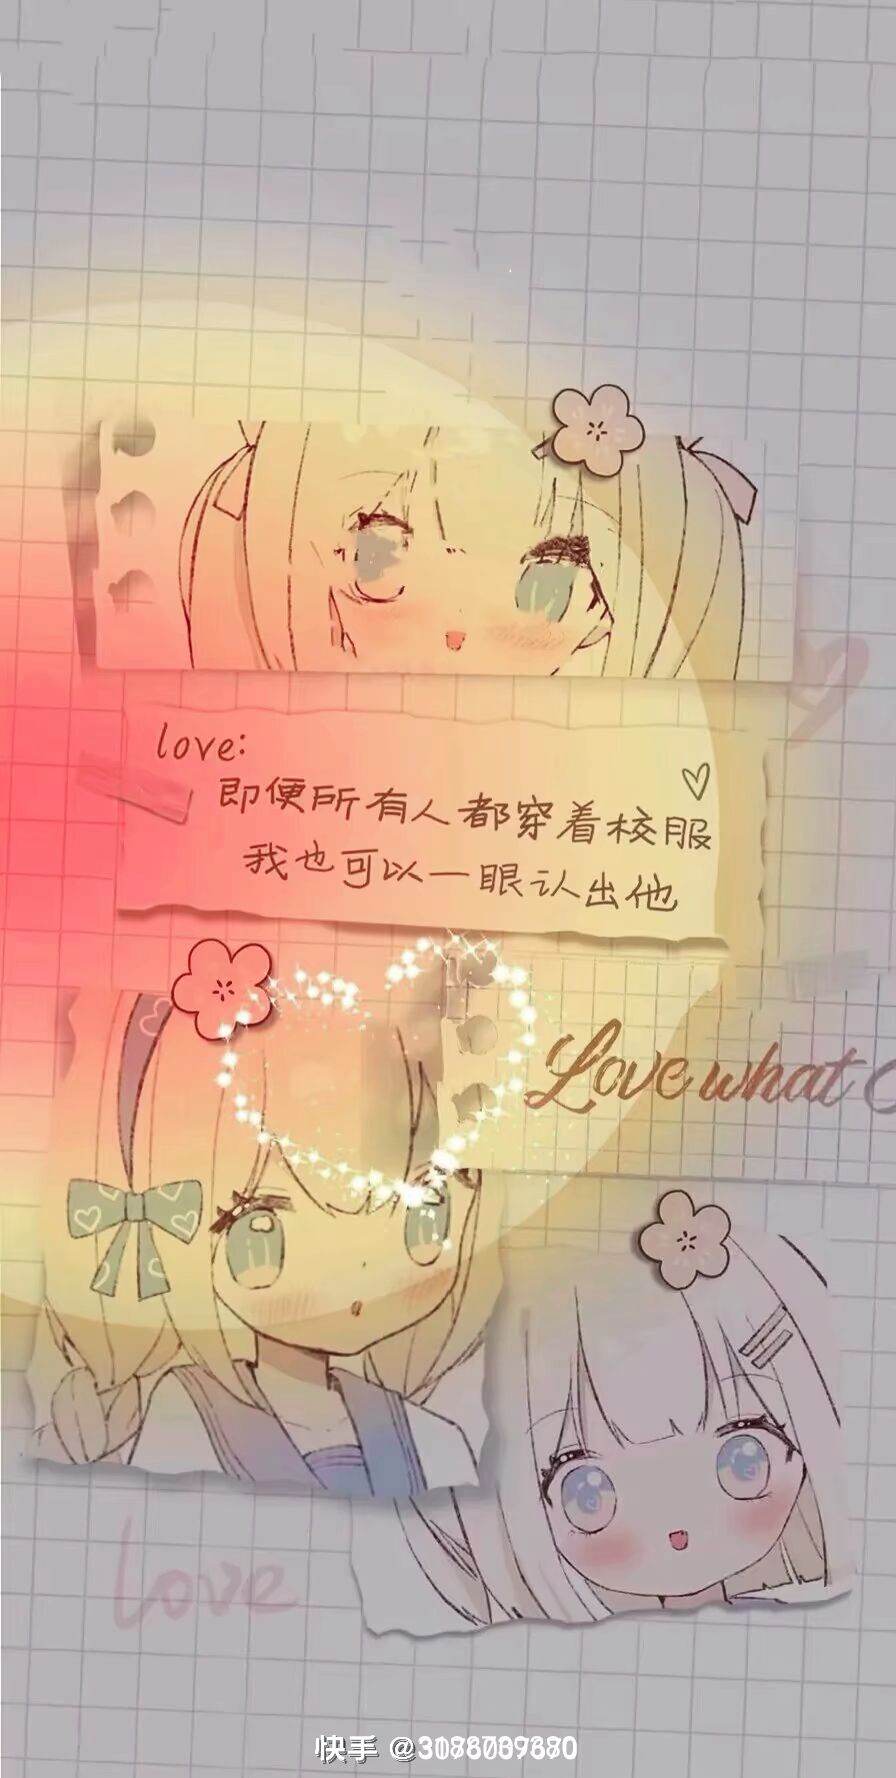 love:
即便所有人都穿着校服
我也可以一眼认出他
Love what
love
快手